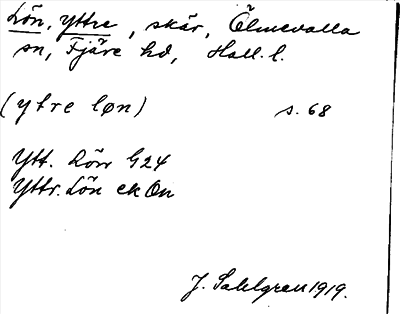 Lön, Yttre, skär, Ölmevalla
sn, Fjäre hd, Hall. l.
(ytre løn) s. 68
Ytt. Lön G24
Yttr. Lön ek On
J. Sahlgren 1919.